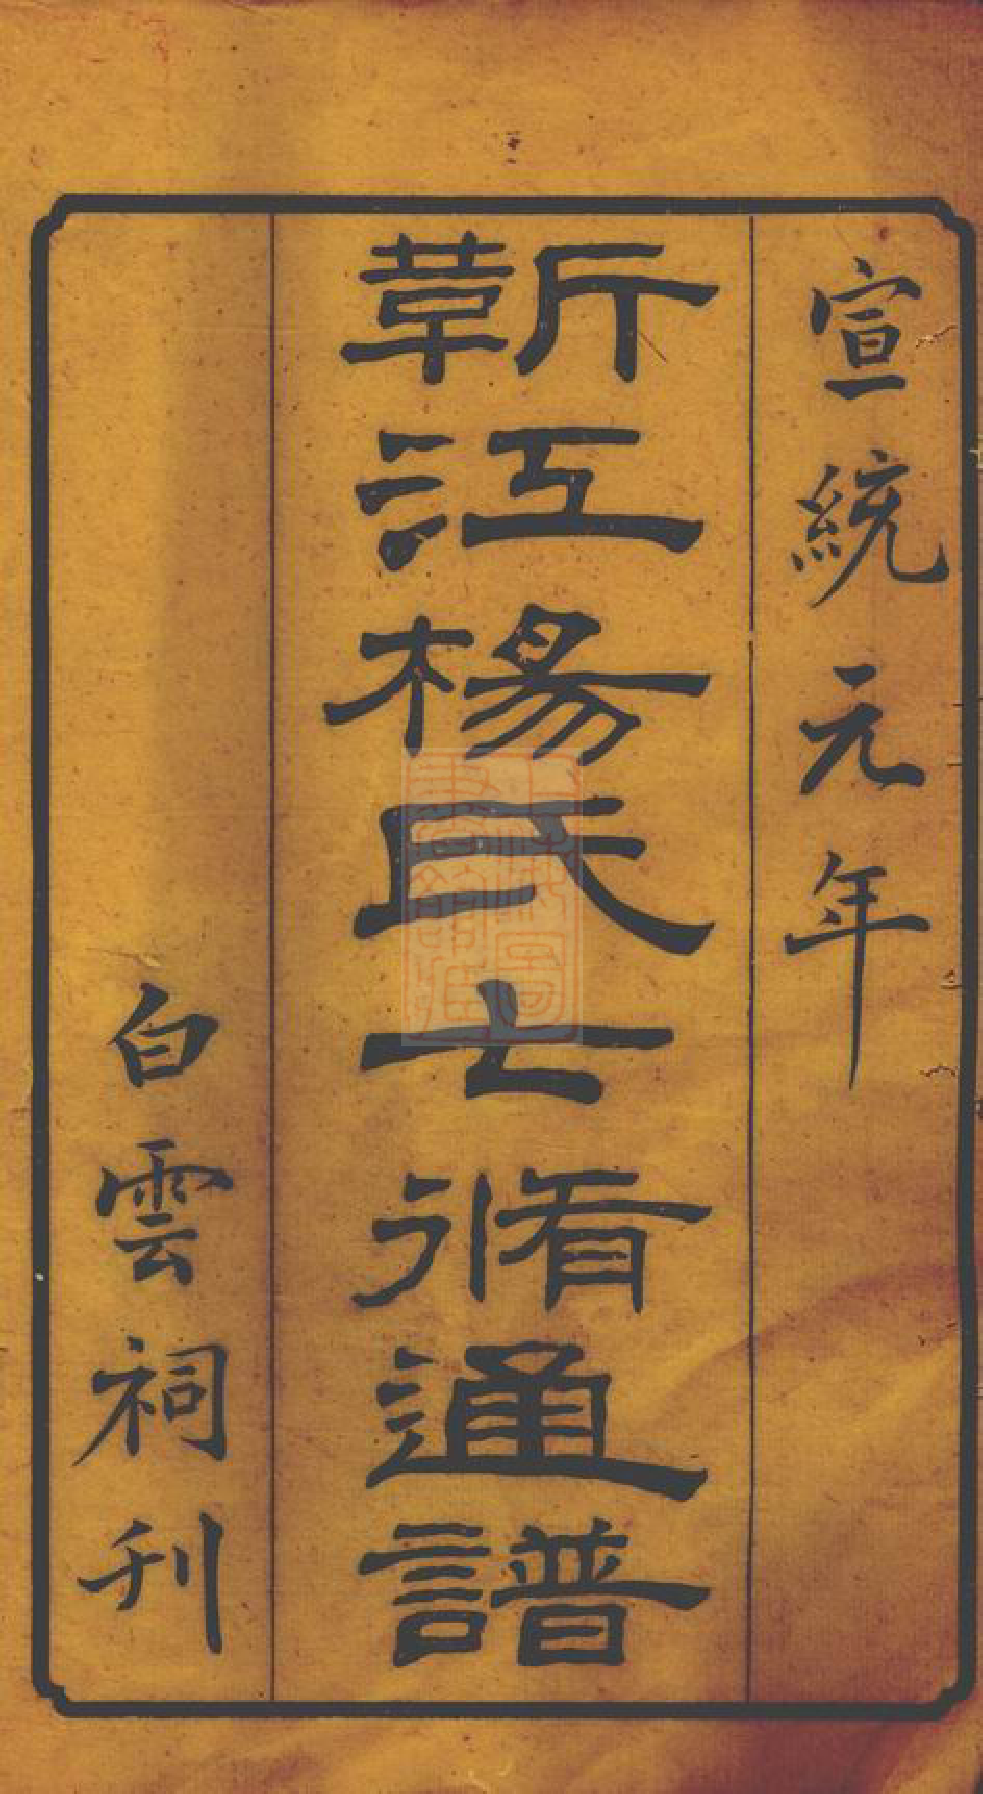 宣統元年
靳江楊氏七脩通譜
白雲祠刊